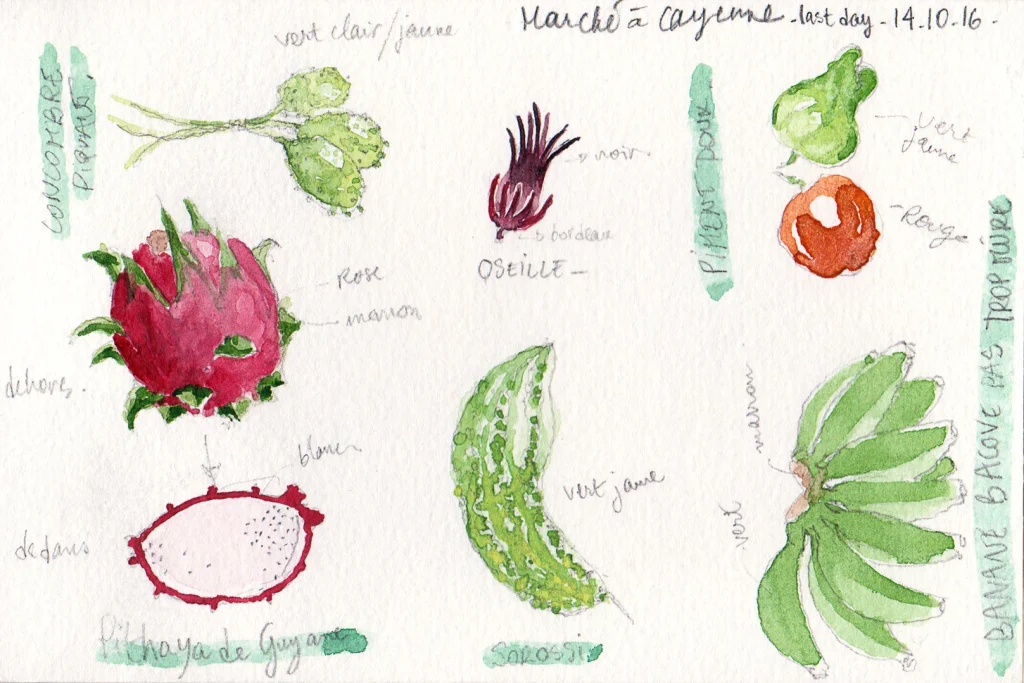 Marché à Cayenne - last day - 14.10.16 -
vert clair/jaune
CONCOMBRE
PIQUANT
noir
bordeaux
OSEILLE -
PIMENT DOUX
vert
jaune
Rouge
Rose
marron
dehors.
blanc
dedans
Pithaya de Guyane
vert jaune
SOROSSI
marron
vert
BANANE BACOVE PAS TROP MÛRE